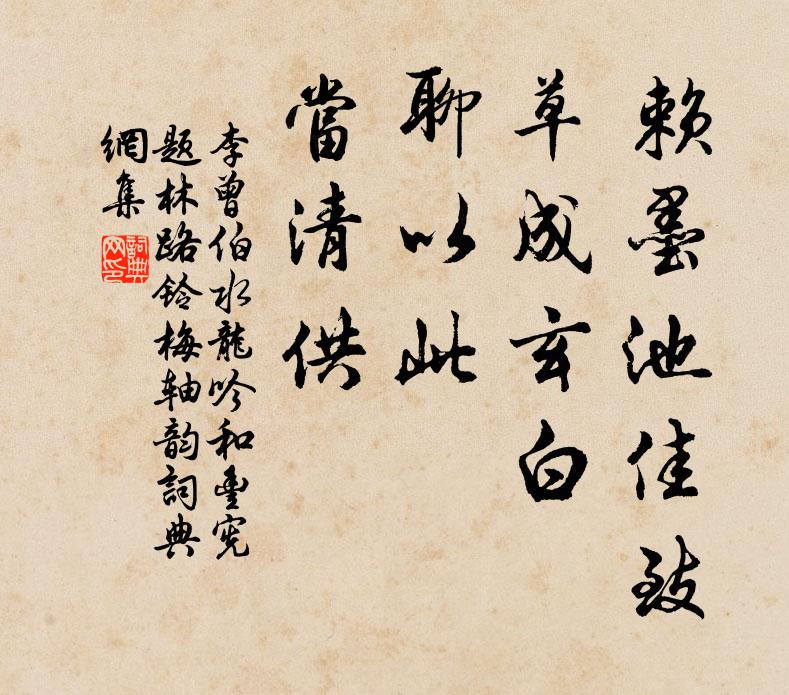 賴墨池佳致
草成玄白
聊以此
當清供
李曾伯水龍吟和豐宪
题林路鈴梅轴韵詞典
網集
詞典网印